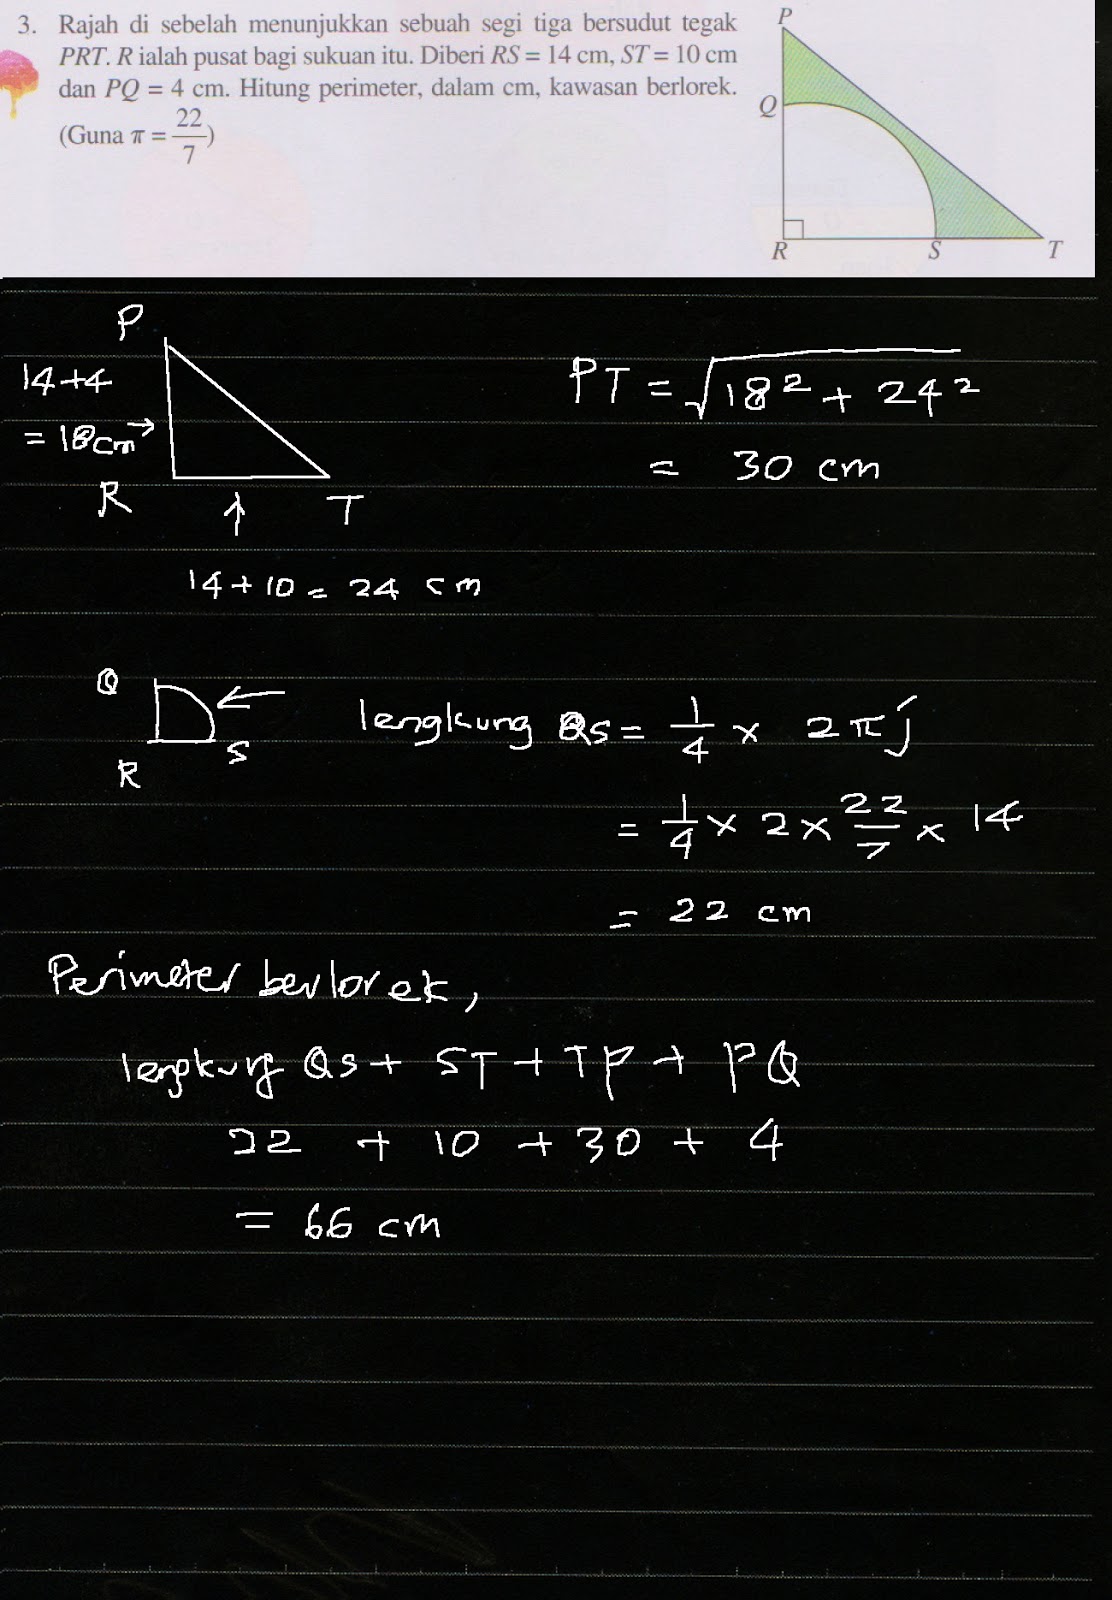 3. Rajah di sebelah menunjukkan sebuah segi tiga bersudut tegak
PRT. R ialah pusat bagi sukuan itu. Diberi RS = 14 cm, ST = 10 cm
dan PQ = 4 cm. Hitung perimeter, dalam cm, kawasan berlorek.
(Guna π = 22/7)
P
Q
R
S
T
P
14+4
= 18cm →
R
↑
T
14 + 10 = 24 cm
PT = √18² + 24²
= 30 cm
Q
R
S
lengkung QS = 1/4 × 2πj
= 1/4 × 2 × 22/7 × 14
= 22 cm
Perimeter berlorek,
lengkung QS + ST + TP + PQ
22 + 10 + 30 + 4
= 66 cm